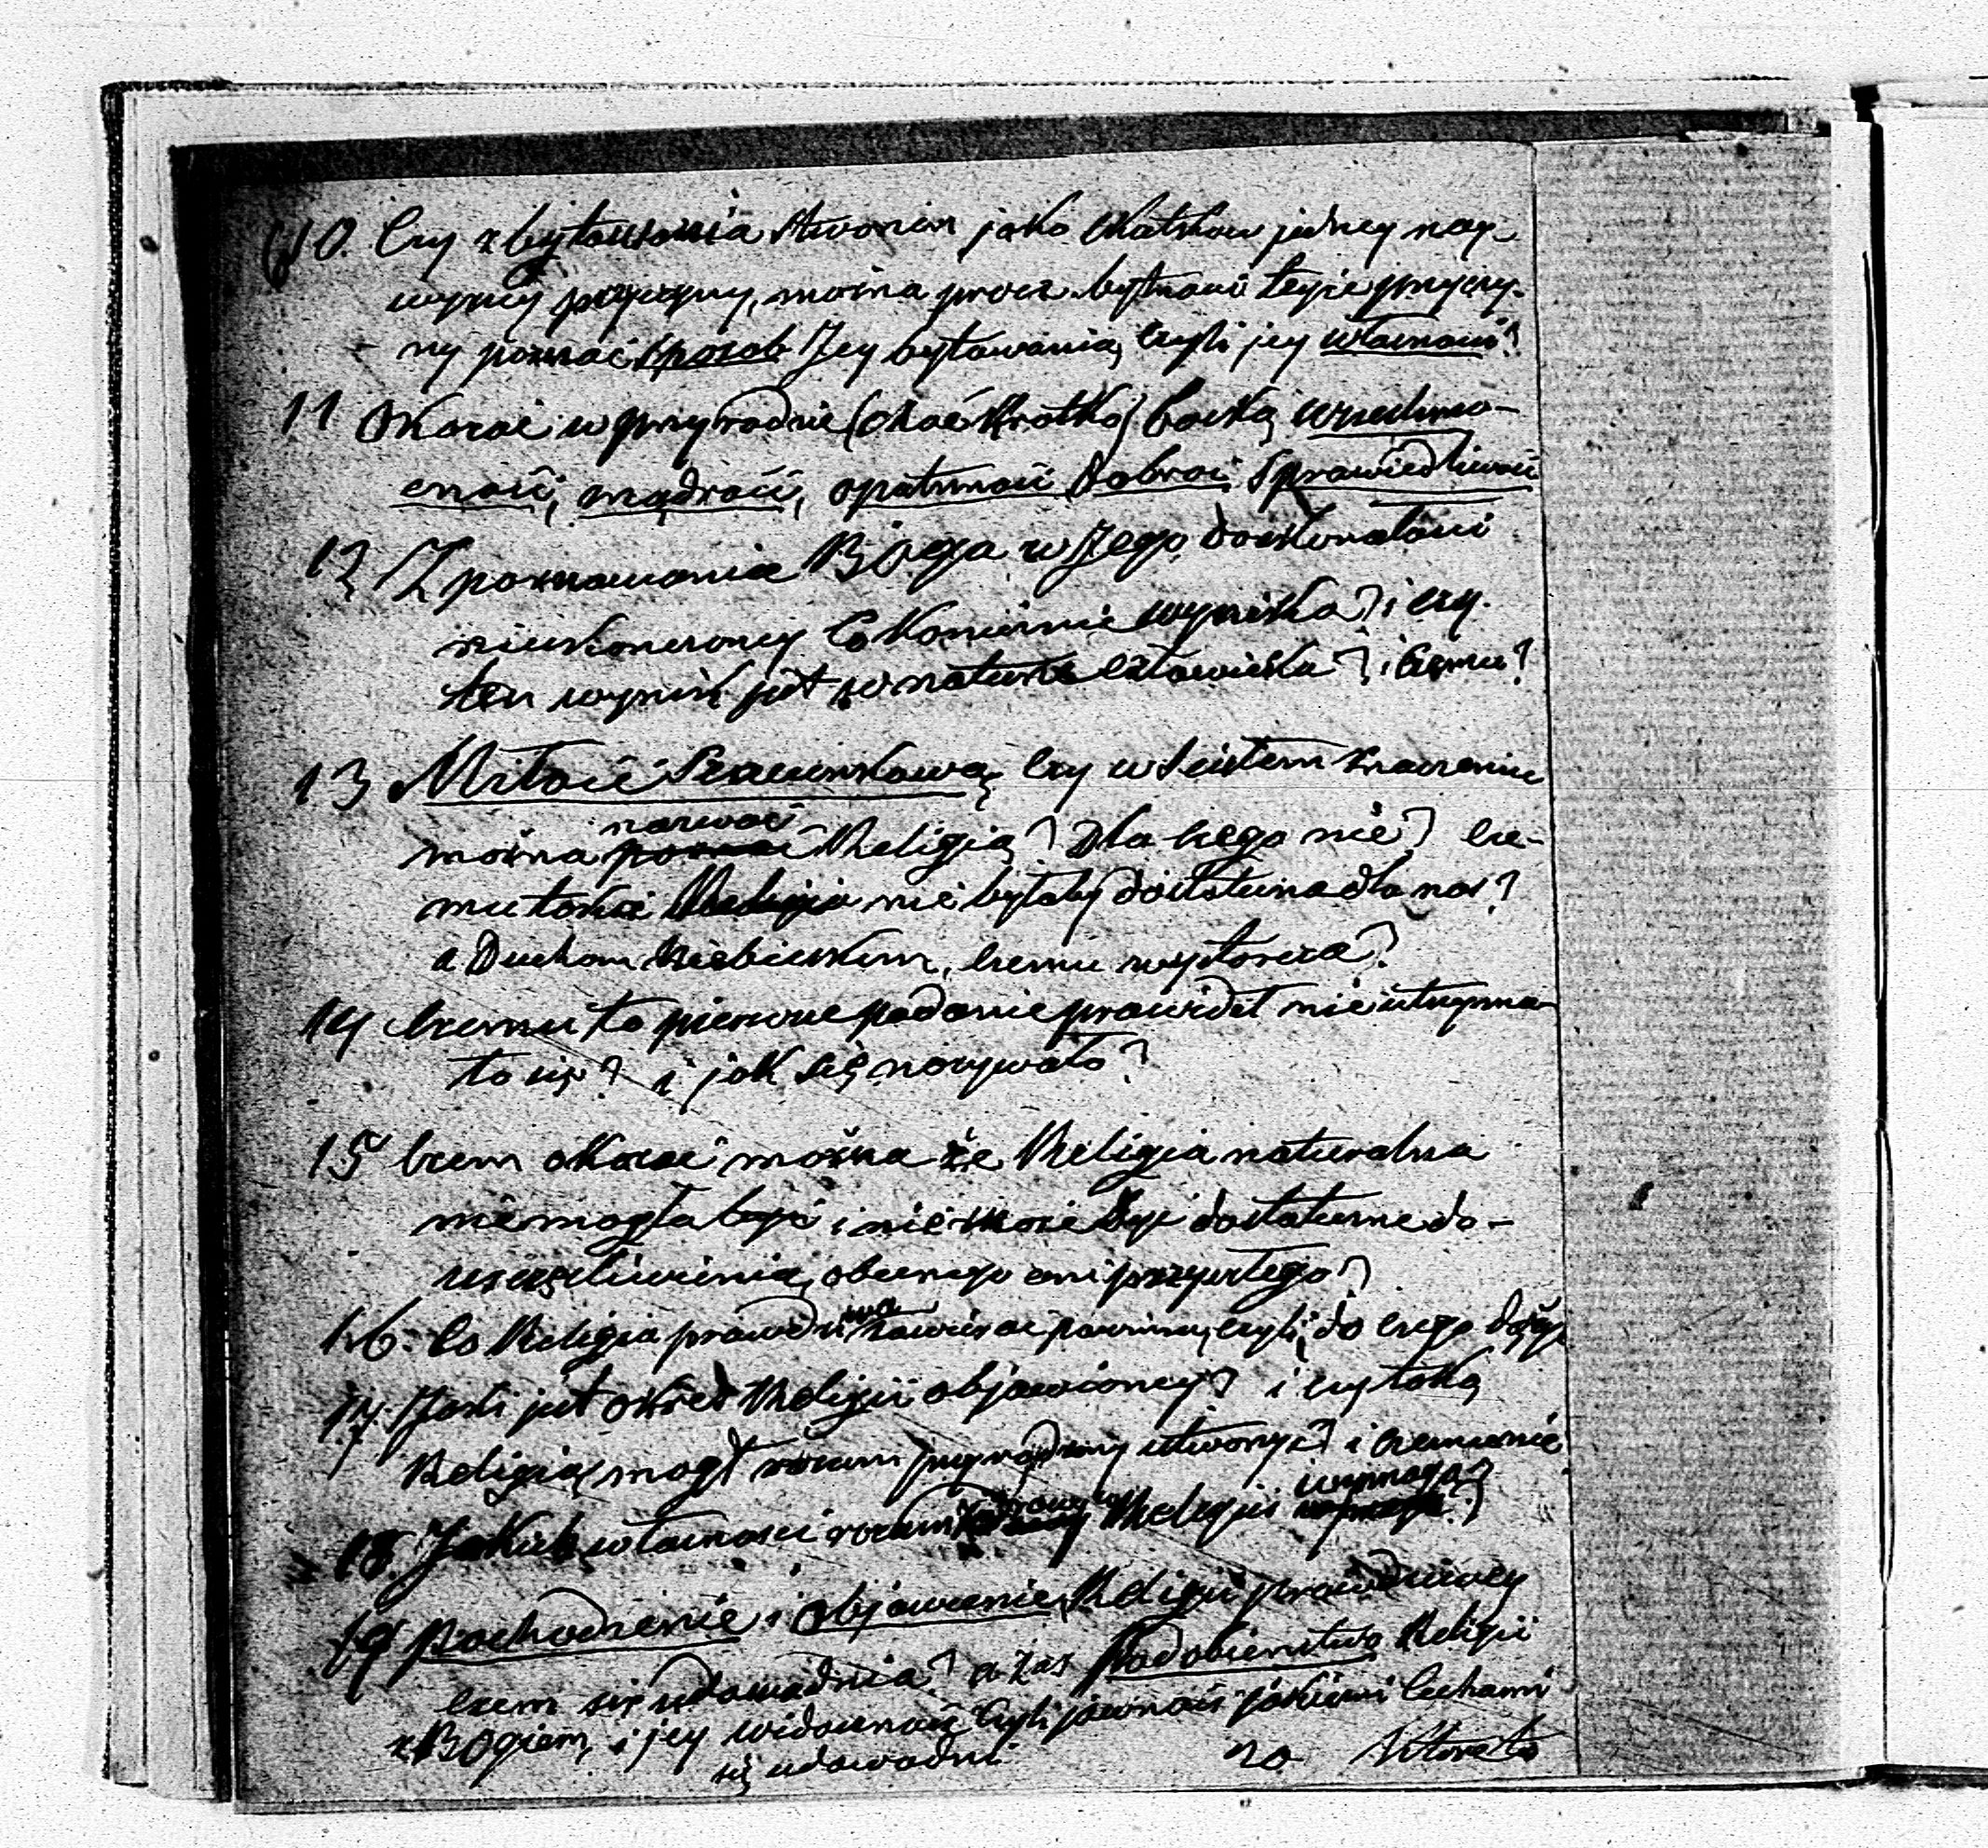 10. Czy z bytowania stworzeń jako skutków jedney nay-
wyższey przyczyny, można prócz bytności teyże przyczy-
ny poznać sposób Jey bytowania, czyli jey własności?
11 Okazać w przyrodzie (choć krótko) boską wszechmo-
cność, mądrość, opatrzność dobroć sprawiedliwość
12 Z poznawania Boga w Jego doskonałości
nieskończoney co koniecznie wynika? i czy
ten wynik jest w naturze człowieka? i czemu?
13 Miłość szacunkową czy w ścisłem znaczeniu
można nazwać Religią? Dla czego nie? cze-
mu takaż Religia nie byłaby dostateczna dla nas?
a Duchom Niebieskim, czemu wystarcza?
14 Czemu to pierwsze podanie prawideł nie utrzyma-
ło się? i jak się nazywało?
15 Czem okazać można że Religia naturalna
nie mogła być i nie może być dostateczne do-
uszczęśliwienia, obecnego ani przyszłego?
16. Co Religia prawdziwa zawierać powinna, czyli do czego dąży
17. Jaki jest okres Religii objawioney? i czy taką
Religią mógł rozum przyrodzony utworzyć? i czemu nie
18. Jakich własności rozum Religii wymaga?
19 Pochodzenie i objawienie Religii prawdziwey
czem się udowadnia? a zaś Podobieństwo Religii
z Bogiem, i jey widoczność czyli jawność jakiemi cechami
się udowodni 20 Która to